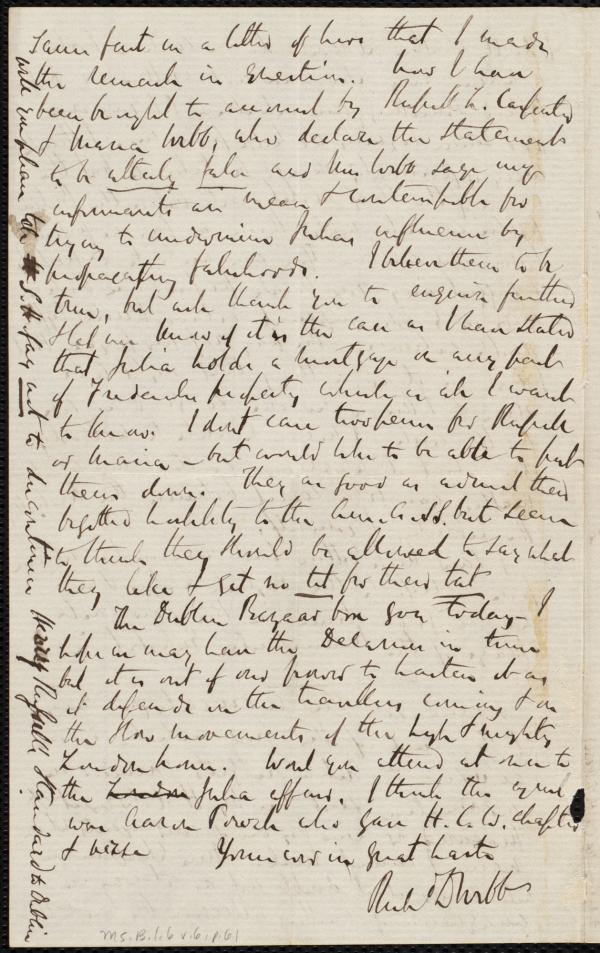 same fact in a letter of hers that I made
the remark in question. Now I have
been brought to account by Russell L. Carpenter
& Maria Webb, who declare the statements
to be utterly false and Mrs Webb says my
informants are mean & contemptible for
trying to undermine Julia's influence by
propagating falsehoods. I believe them to be
true, but ask thank you to enquire further
& let me know if it is the case as I have stated
that Julia holds a mortgage on any part
of Frederick's property which is all I want
to know. I don't care twopence for Russell
or Maria – but would like to be able to put
them down. They as good as admit their
bigotted hostility to the Am. A.S.S. but seem
to think they should be allowed to say what
they like & get no tit for their tat
The Dublin Bazaar box goes today – I
hope we may have the Delaines in time
but it is out of our power to hasten it as
it depends on the travellers coming & on
the slow movements of the high & mighty
London house. Wont you attend at once to
the London Julia affair. I think the
was Aaron Powell who gave H. C. W. chapter
& verse Yours ever in great haste
Richd D Webb
will you please tell S. H. Gay not to discontinue Russell's Standard to Dublin
Ms. B. 1. 6 v. 6, p. 61